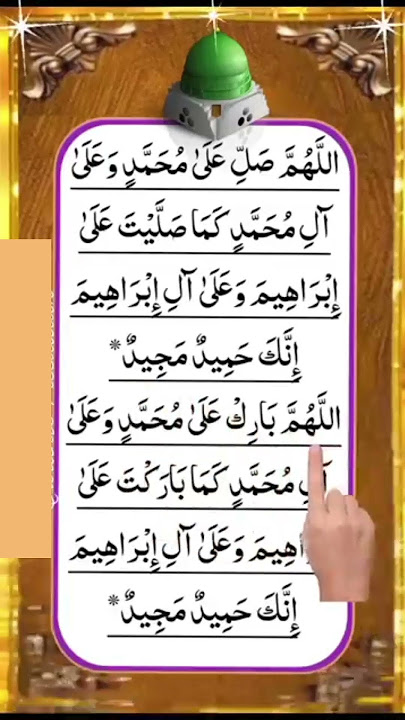 اللَّهُمَّ صَلِّ عَلَىٰ مُحَمَّدٍ وَعَلَىٰ
آلِ مُحَمَّدٍ كَمَا صَلَّيْتَ عَلَىٰ
إِبْرَاهِيمَ وَعَلَىٰ آلِ إِبْرَاهِيمَ
إِنَّكَ حَمِيدٌ مَجِيدٌ*
اللَّهُمَّ بَارِكْ عَلَىٰ مُحَمَّدٍ وَعَلَىٰ
مُحَمَّدٍ كَمَا بَارَكْتَ عَلَىٰ
وَعَلَىٰ آلِ إِبْرَاهِيمَ
إِنَّكَ حَمِيدٌ مَجِيدٌ*